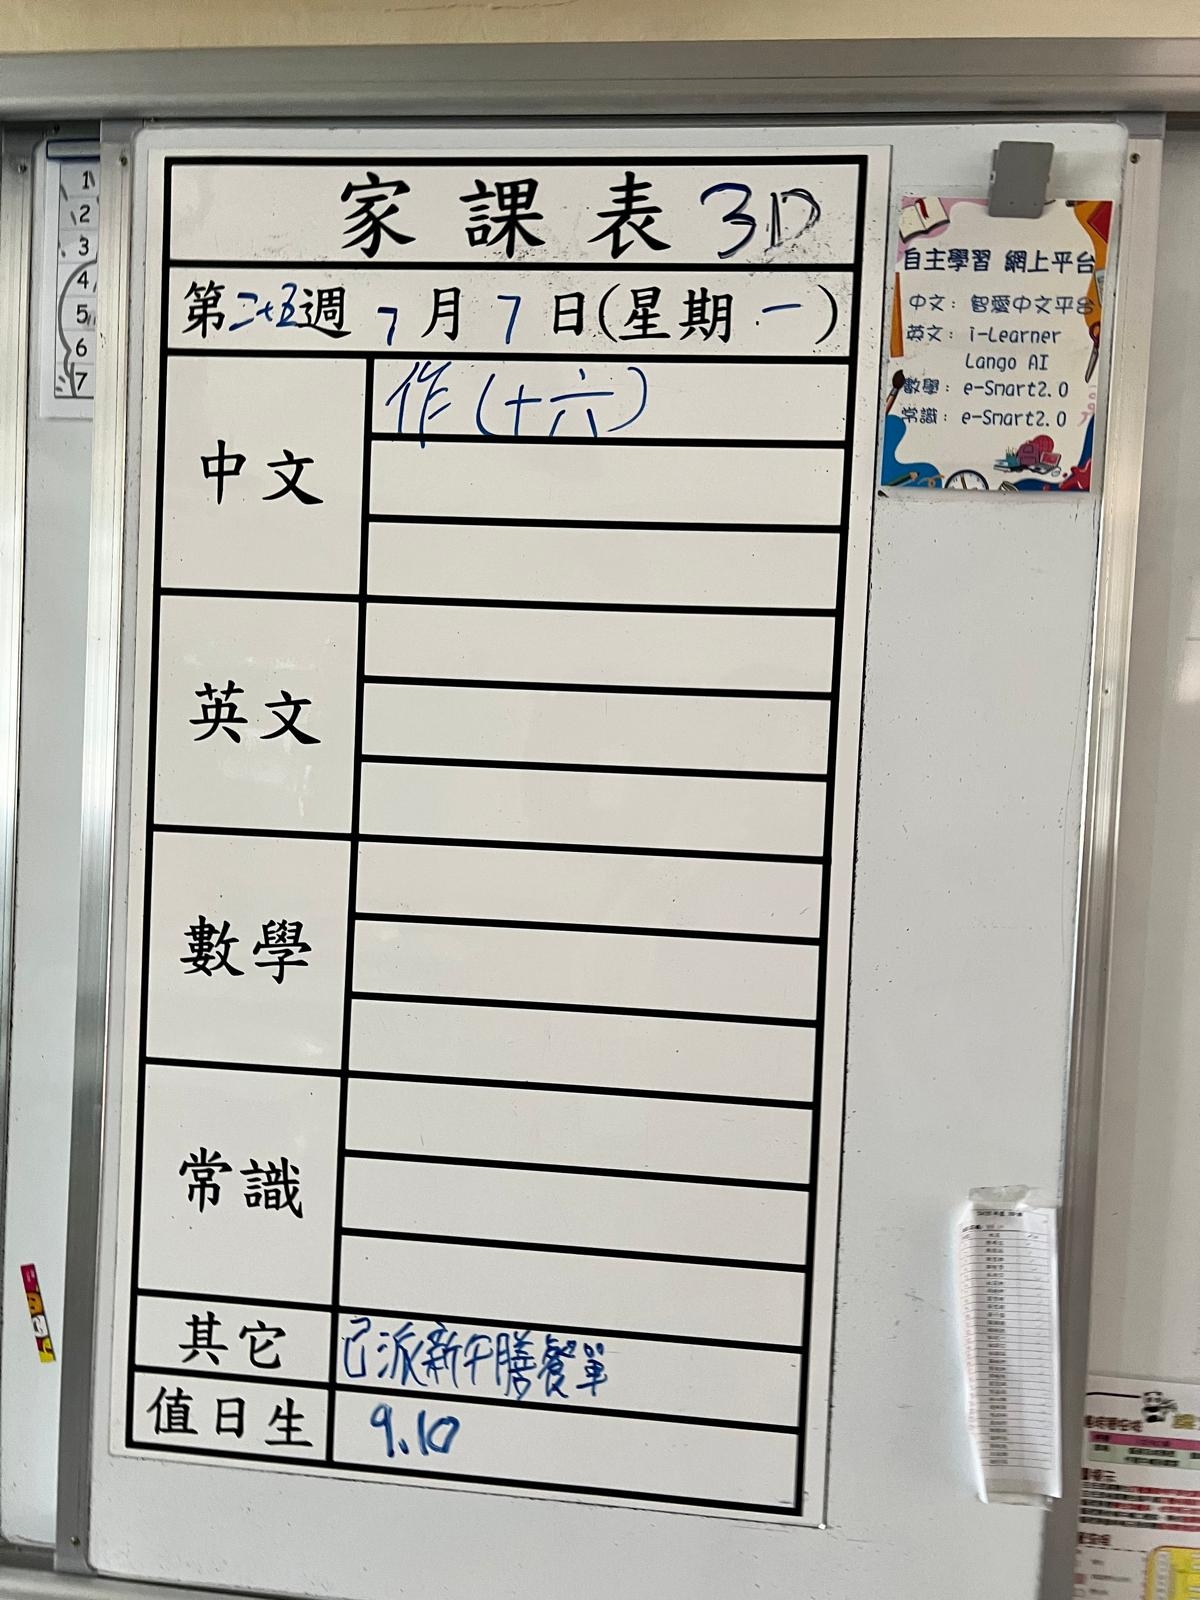 家課表 3D
第二十五週 7月7日(星期一)
中文
作(十六)
英文
數學
常識
其它
己派新午膳餐單
值日生
9.10
自主學習 網上平台
中文：智愛中文平台
英文：i-Learner
Lango AI
數學：e-Smart2.0
常識：e-Smart2.0
1
2
3
4
5
6
7